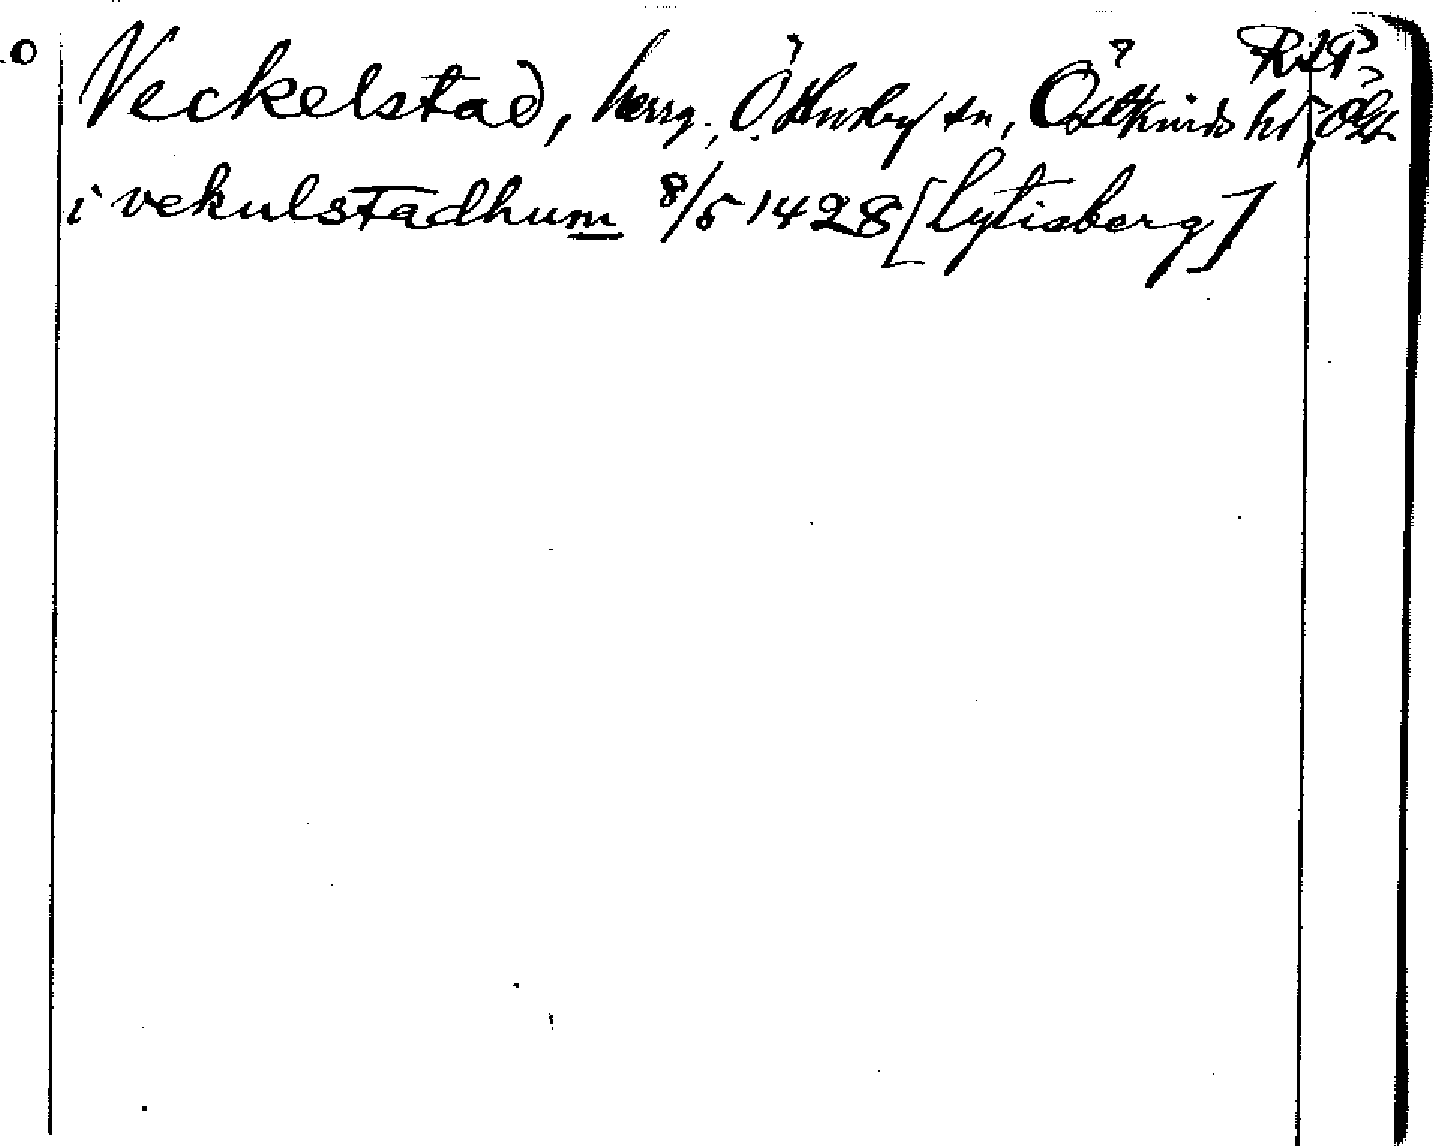 RAP
Veckelstad, herrg., Ö. Husby sn, Östkinds hd, Ög
i vekulstadhum 8/5 1428 [Lytisberg]